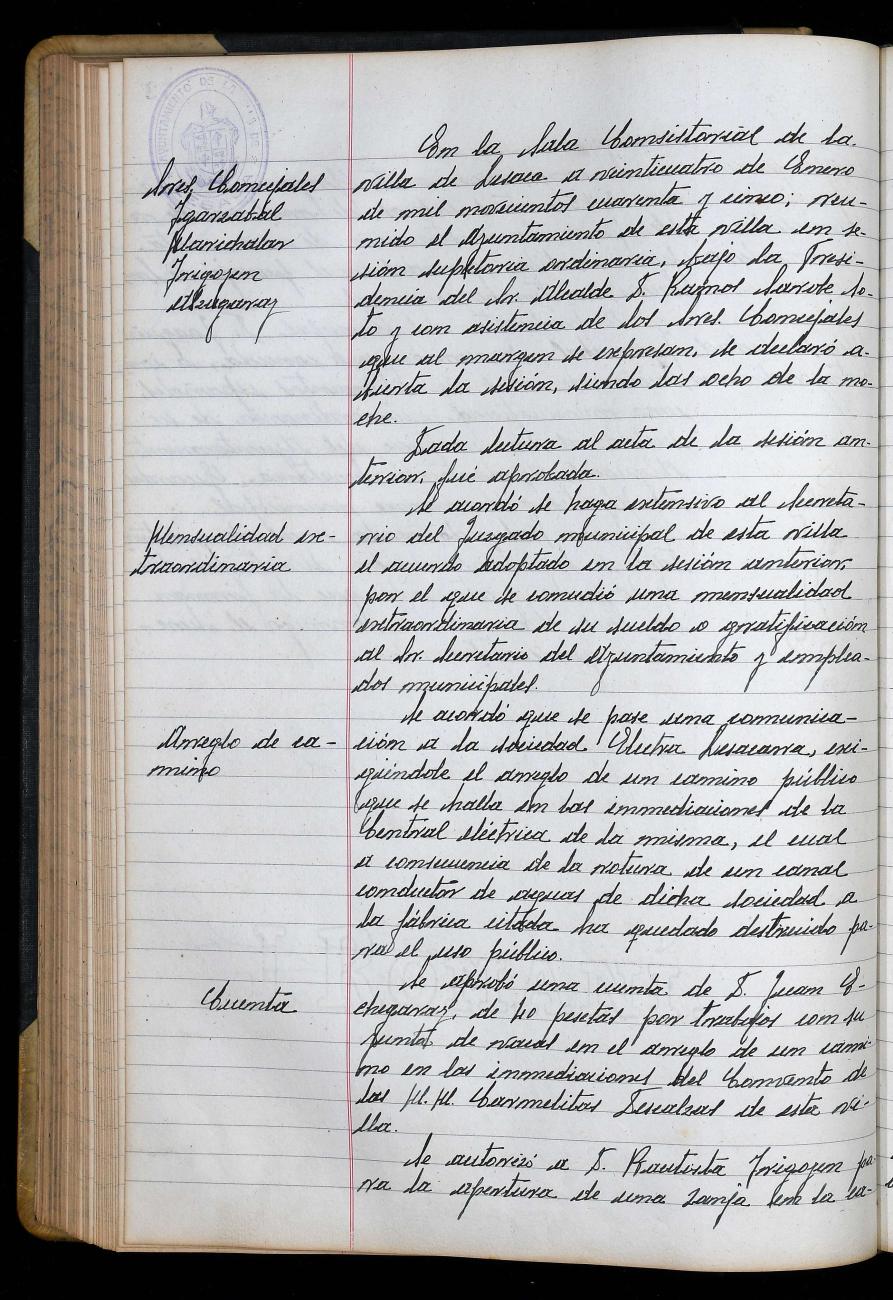 AYUNTAMIENTO DE
Sres. Concejales
Igarzabal
Marichalar
Irigojen
Alzugaray
En la Sala Consistorial de la
villa de Lesaca a veinticuatro de Enero
de mil novecientos cuarenta y cinco; reu-
nido el Ayuntamiento de esta villa en se-
sión supletoria ordinaria, bajo la Presi-
dencia del Sr. Alcalde D. Ramos Sarobe So-
to y con asistencia de los Sres. Concejales
que al margen se expresan, se declaró a-
bierta la sesión, siendo las ocho de la no-
che.
Dada lectura al acta de la sesión an-
terior, fué aprobada.
Mensualidad ex-
traordinaria
Se acordó se haga extensivo al Secreta-
rio del Juzgado municipal de esta villa
el acuerdo adoptado en la sesión anterior,
por el que se concedió una mensualidad
extraordinaria de su sueldo o gratificación
al Sr. Secretario del Ayuntamiento y emplea-
dos municipales.
Arreglo de ca-
mino
Se acordó que se pase una comunica-
ción a la sociedad Electra Lesacarra, exi-
giéndole el arreglo de un camino público
que se halla en las inmediaciones de la
Central eléctrica de la misma, el cual
a consecuencia de la rotura de un canal
conductor de aguas de dicha sociedad a
la fábrica citada ha quedado destruido pa-
ra el uso público.
Cuenta
Se aprobó una cuenta de D. Juan E-
chegaray, de 40 pesetas por trabajos con su
yunta de vacas en el arreglo de un cami-
no en las inmediaciones del Convento de
las M.M. Carmelitas Descalzas de esta vi-
lla.
Se autorizó a D. Bautista Irigojen pa-
ra la apertura de una zanja en la ca-